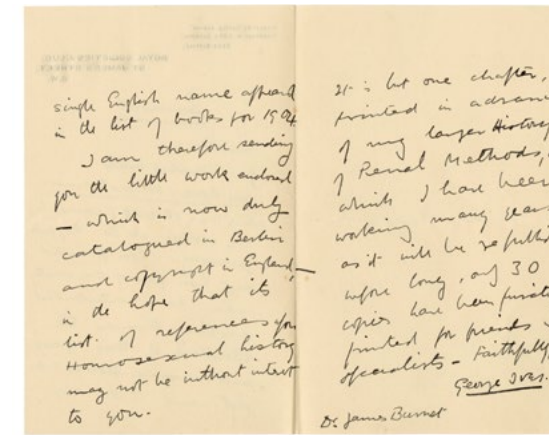 single English name appeared
in the list of books for 1904.
I am therefore sending
you the little work enclosed
— which is now duly
catalogued in Berlin
and copyright in England,—
in the hope that its
list of references for
Homosexual history
may not be without interest
to you.
It is but one chapter,
printed in advan
of my larger History
of Penal Methods,
which I have been
working many year
as it will be republi
before long, only 30
copies have been privat
printed for friends
specialists – Faithfully
George Ives.
Dr. James Burnet